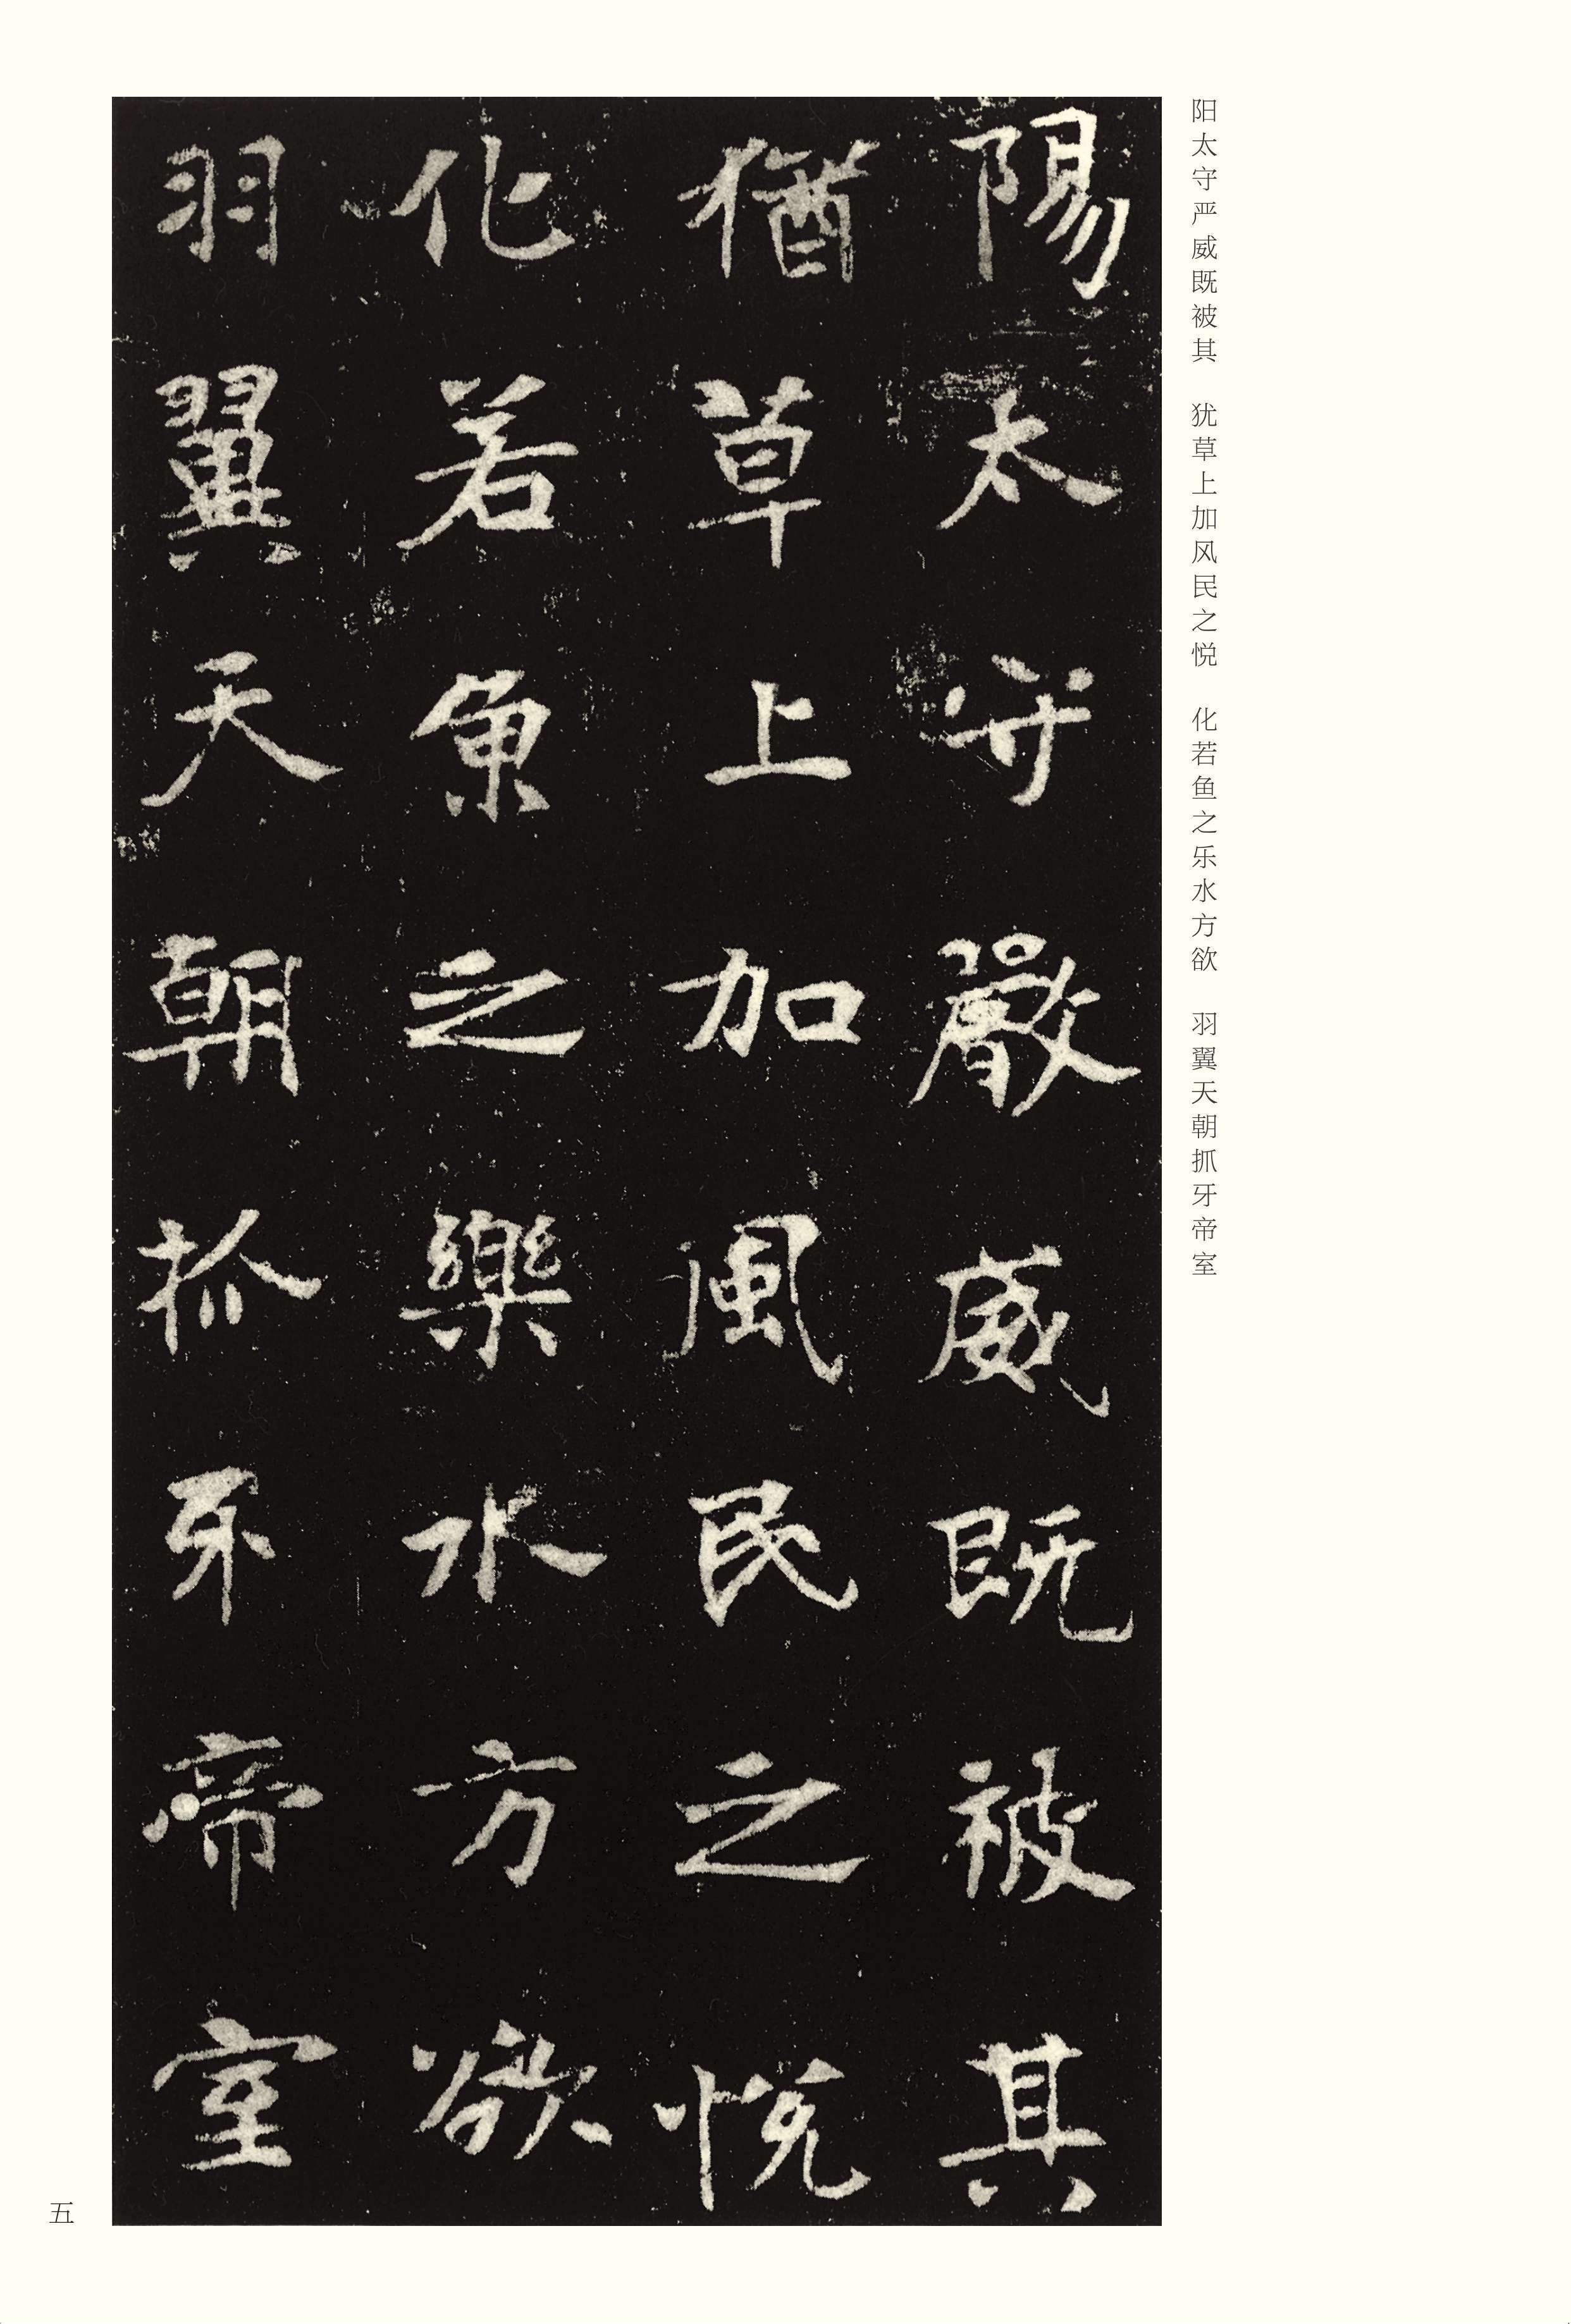 阳太守严威既被其　犹草上加风民之悦　化若鱼之乐水方欲　羽翼天朝抓牙帝室
陽太守嚴威既被其
猶草上加風民之悅
化若魚之樂水方欲
羽翼天朝抓牙帝室
五